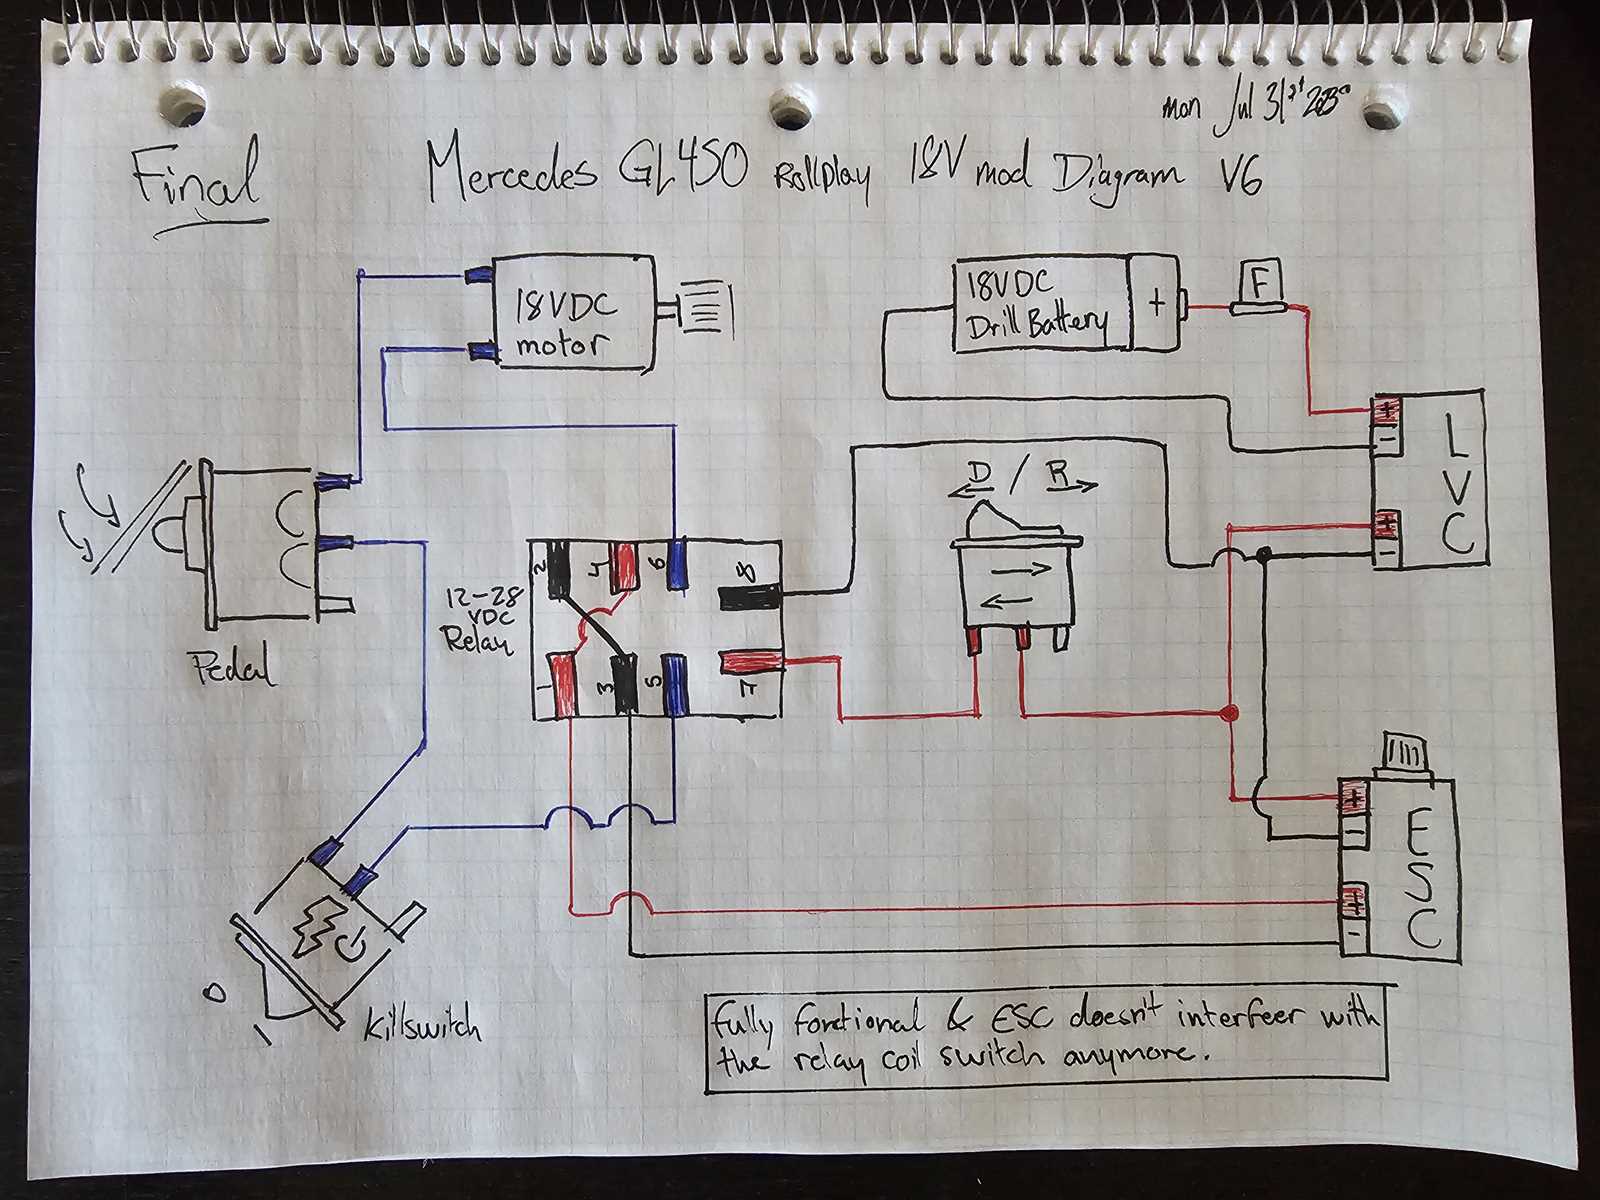 mon Jul 31st 2023
Final Mercedes GL450 Rollplay 18V mod Diagram V6
18VDC
motor
18VDC
Drill Battery
+
F
+
-
L
V
C
+
-
D / R
12-28
VDC
Relay
2
4
6
8
1
3
5
7
Pedal
+
-
E
S
C
+
-
O
I
Killswitch
fully fonctional & ESC doesn't interfeer with
the relay coil switch anymore.